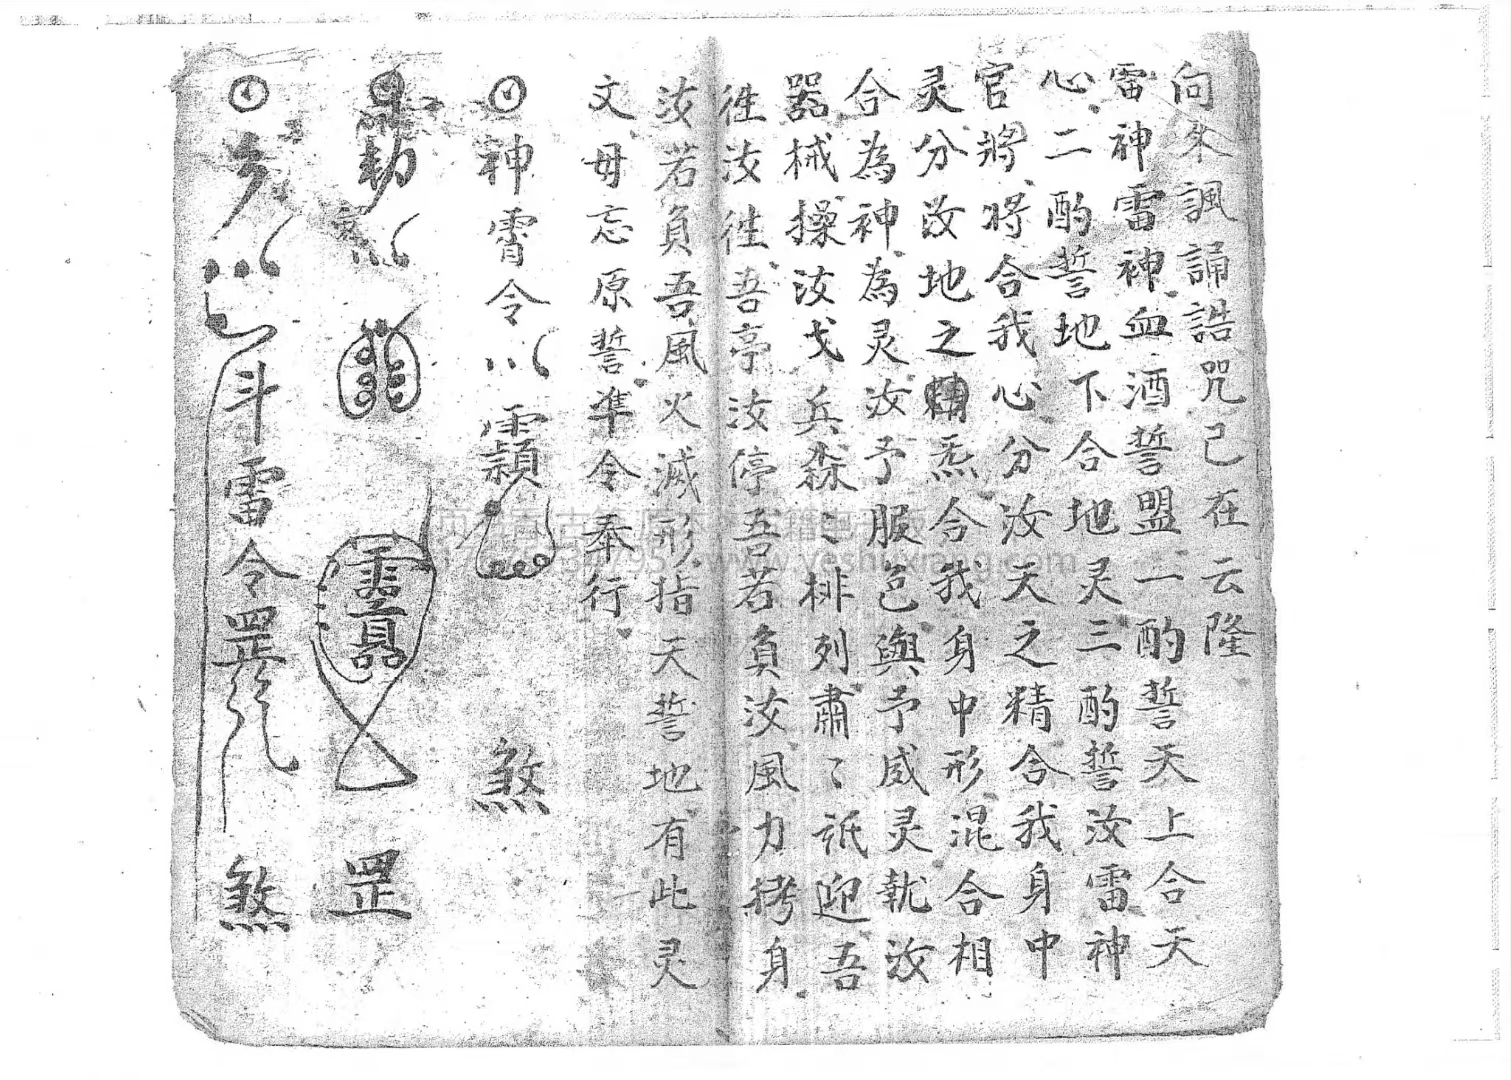 向來諷誦誥咒己在云隆
雷神雷神血酒誓盟一酌誓天上合天
心二酌誓地下合地灵三酌誓汝雷神
官將将合我心分汝天之精合我身中
灵分汝地之精炁合我身中形混合相
合為神為灵汝予服色與予威灵執汝
器械操汝戈兵森〻排列肅〻祗迎吾
徃汝徃吾亭汝停吾若負汝風力拷身
汝若負吾風火滅形指天誓地有此灵
文毋忘原誓準令奉行
神霄令 煞
罡
斗雷令 煞
www.yeshuxiang.com